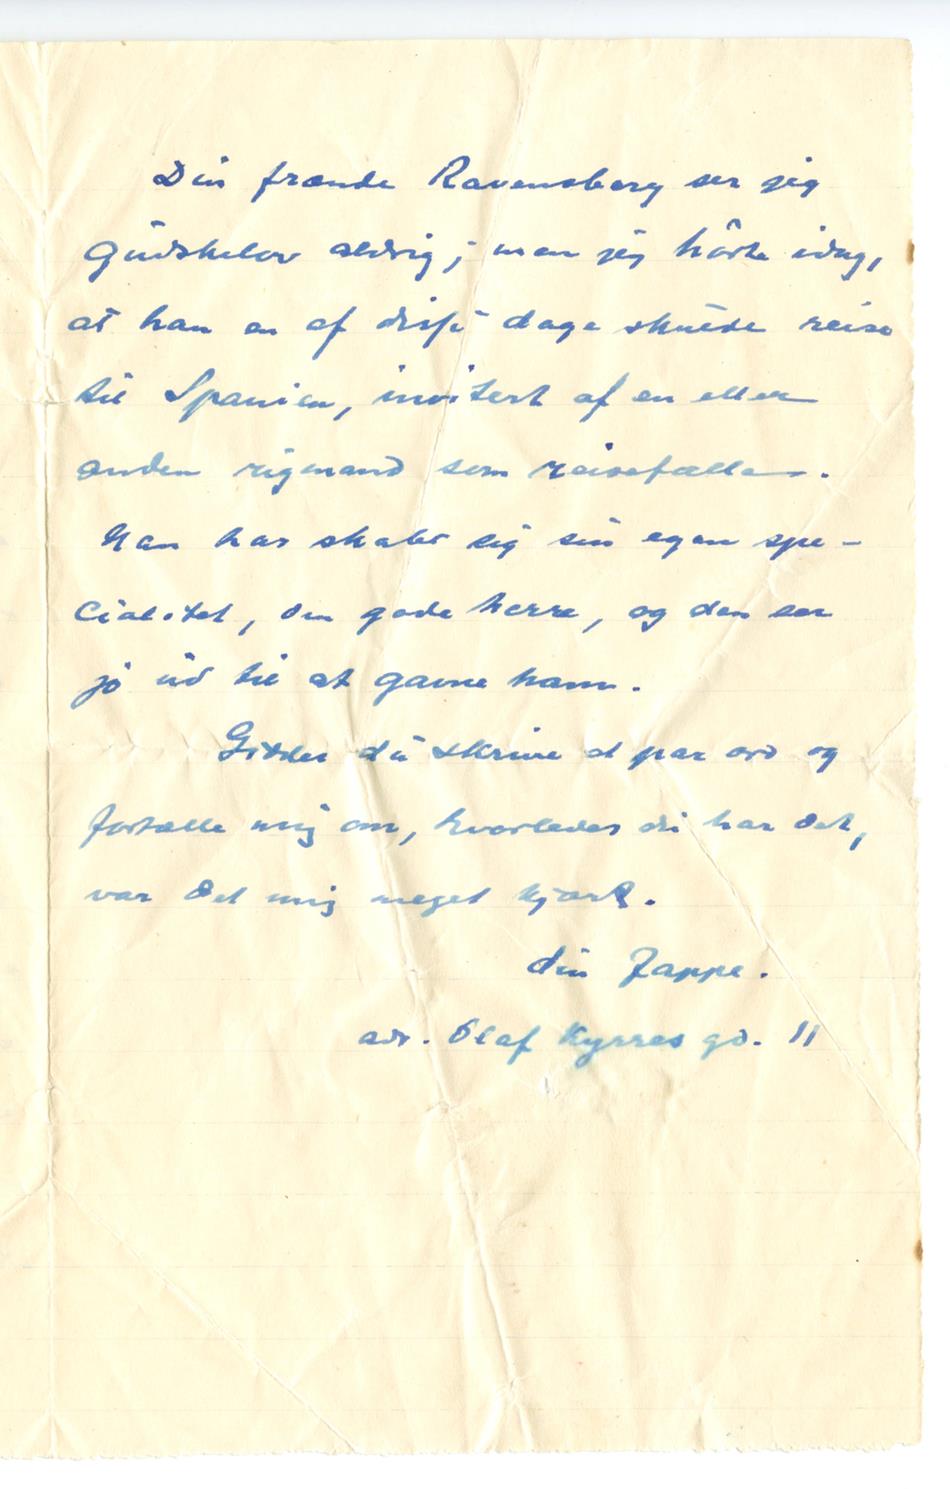 Din frænde Ravensberg ser jeg
Gudskelov aldrig; men jeg hörte idag,
at han en af disse dage skulde reise
til Spanien, invitert af en eller
anden rigmand som reisefælle.
Han har skabt sig sin egen spe-
cialitet, den gode herre, og den ser
jo ud til at gavne ham.
Gidder du skrive et par ord og
fortælle mig om, hvorledes du har det,
var det mig meget kjært.
din Zappe.
adr. Olaf Kyrres gd. 11